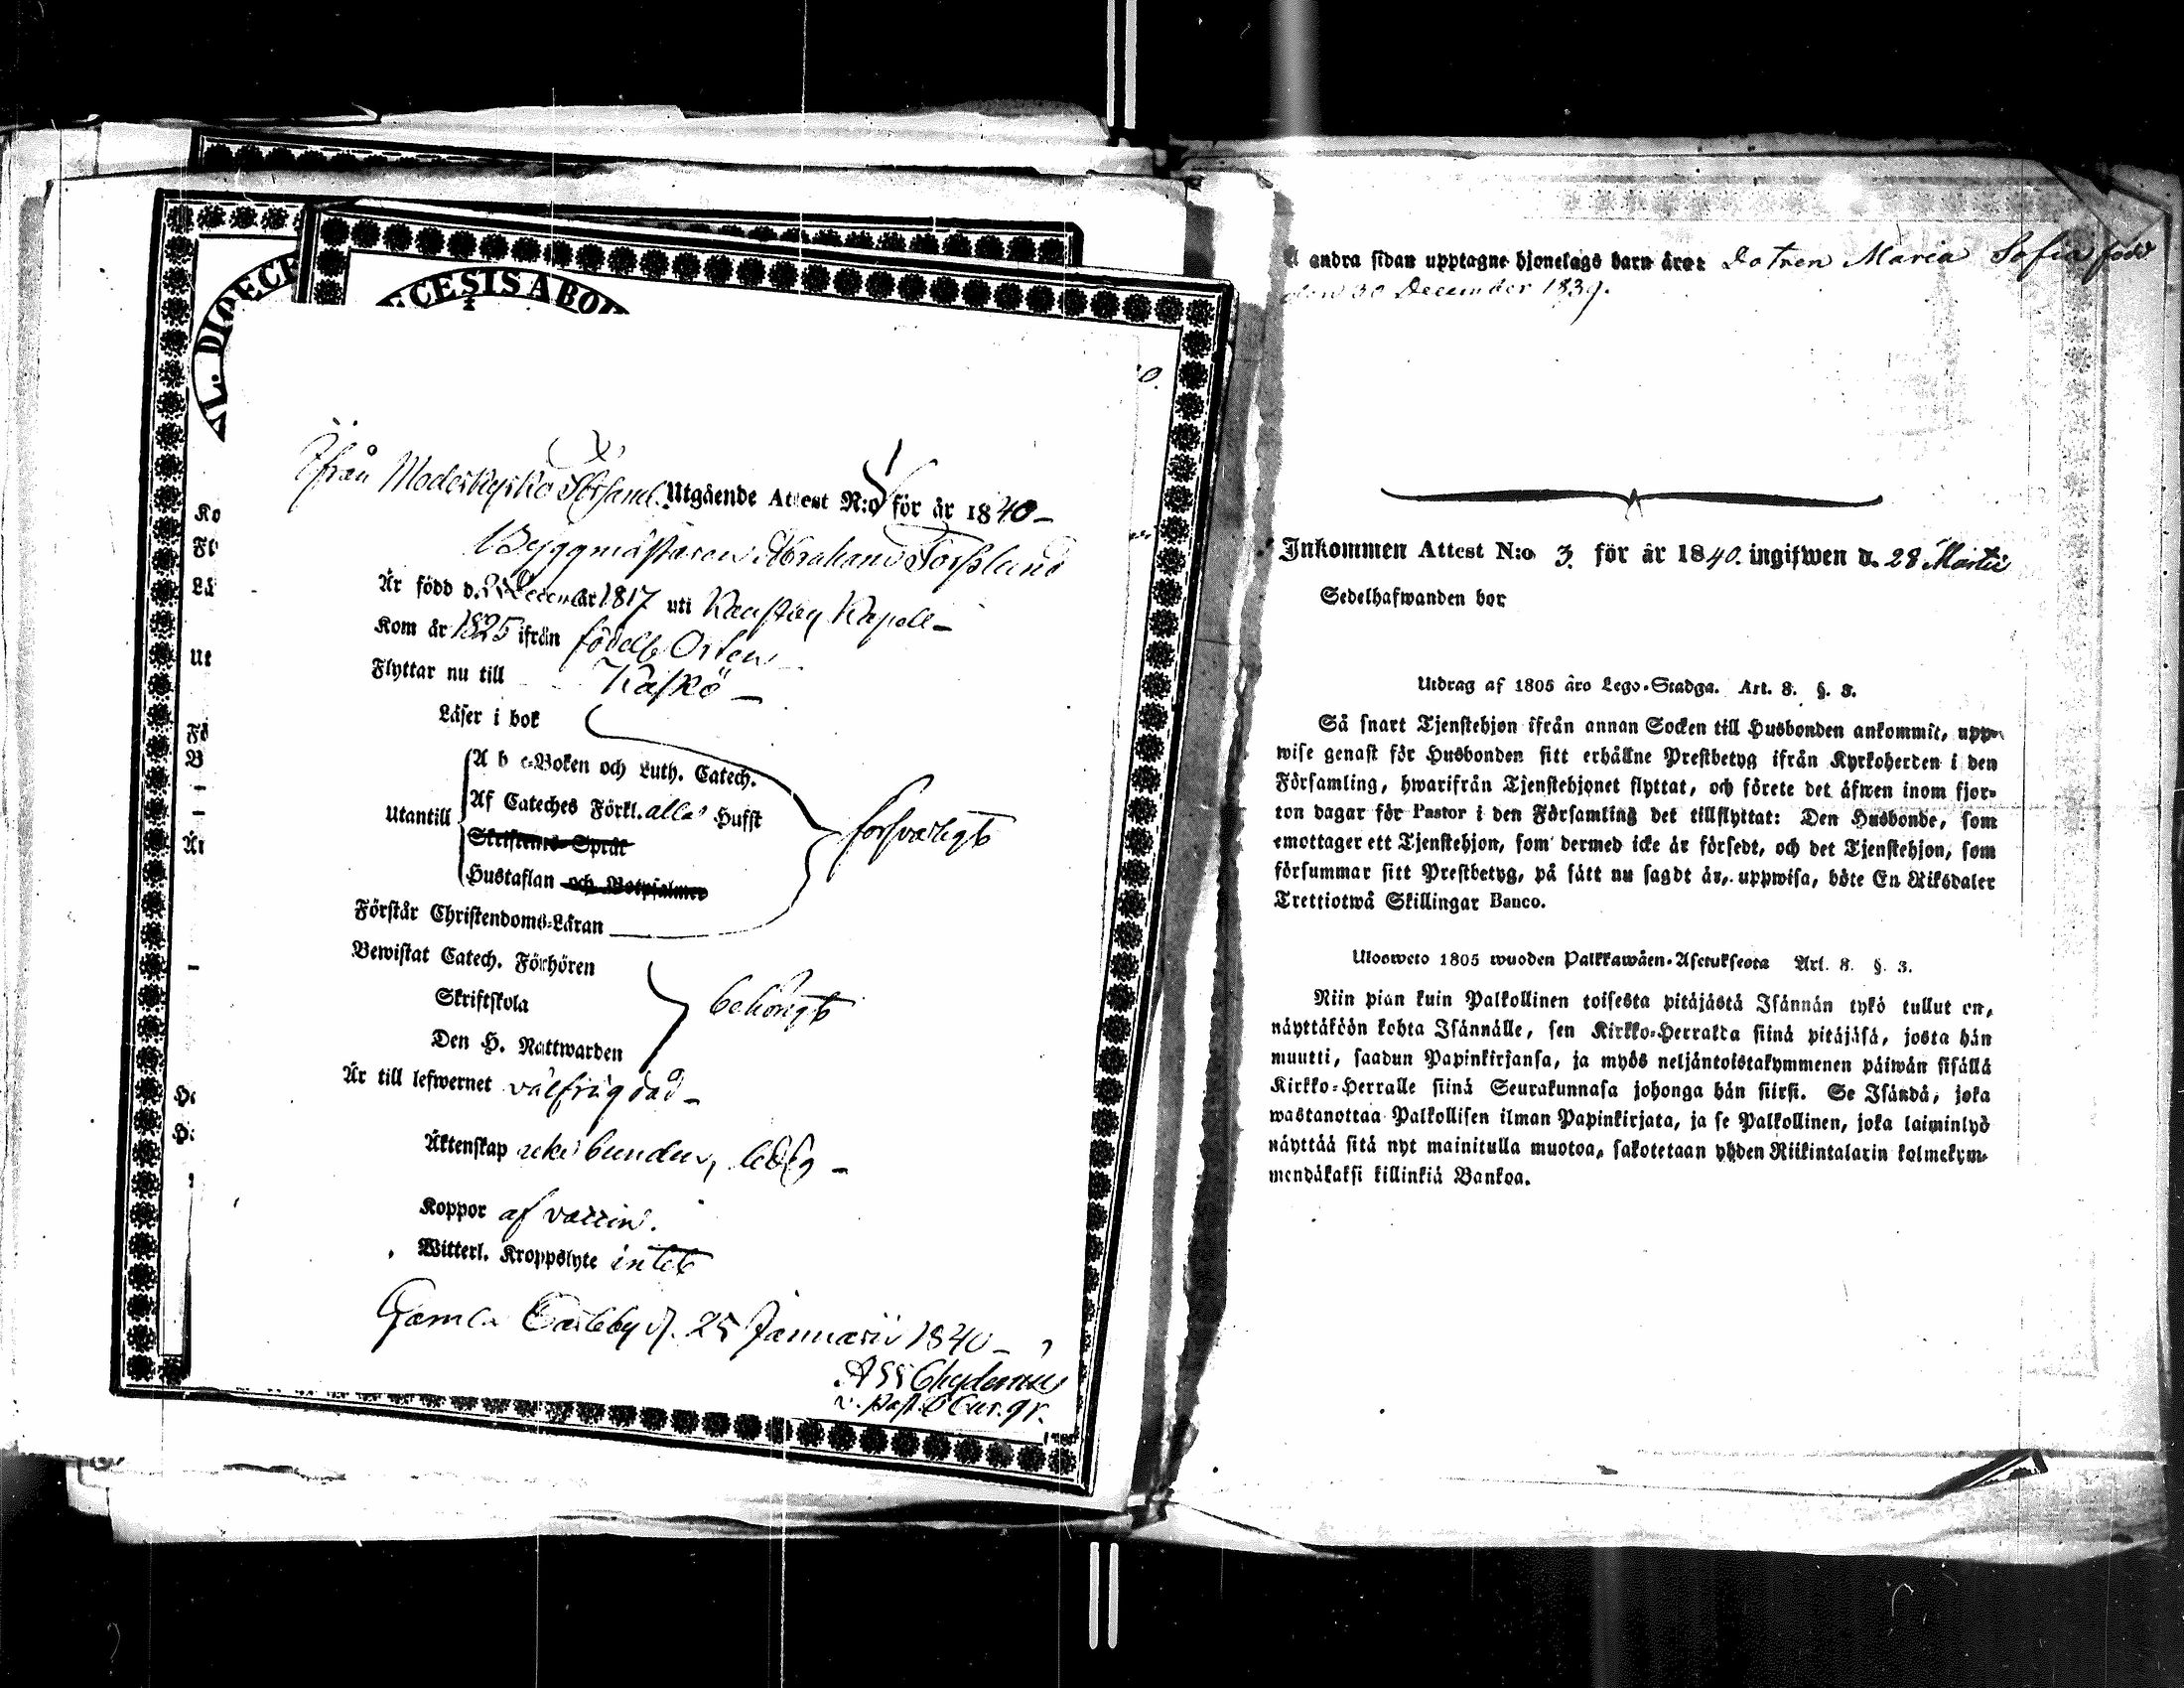 AL. DIOECE
ECESIS ABO
Ifrån Moderkyrko Församl. Utgående Attest N:o 1 för år 1840 –
Byggmästaren Abraham Forssland
Är född d. December 1817 uti Kaustby Kapell –
Kom år 1825 ifrån födelse Orten
Flyttar nu till Kaskö –
Läser i bok
Utantill
A b c-Boken och Luth. Catech.
Af Cateches Förkl. alla Hufst
Skriftenes Språk
Hustaflan och Botpsalmer
försvarligt
Förstår Christendoms-Läran
Bewistat Catech. Förhören
Skriftskola
Den H. Nattwarden
behörigt
Är till lefwernet välfrägdad –
Äktenskap icke bunden, ledig –
Koppor af vaccin.
Witterl. Kroppslyte intet
Gamla Carleby d. 25 Januarii 1840 –
Chydenius
v. Past. Cur. gr.
Ko
Fl
Lä
Ut
Fö
B
Är
å andra sidan upptagne hjonelags barn äro: Dotren Maria Sofia född
den 30 December 1839.
Inkommen Attest N:o 3. för år 1840. ingifwen d. 28 Martii
Sedelhafwanden bor
Utdrag af 1805 års Lego-Stadga. Art. 8. §. 3.
Så snart Tjenstehjon ifrån annan Socken till Husbonden ankommit, upp-
wise genast för Husbonden sitt erhållne Prestbetyg ifrån Kyrkoherden i den
Församling, hwarifrån Tjenstehjonet flyttat, och förete det äfwen inom fjor-
ton dagar för Pastor i den Församling det tillflyttat: Den Husbonde, som
emottager ett Tjenstehjon, som dermed icke är försedt, och det Tjenstehjon, som
försummar sitt Prestbetyg, på sätt nu sagdt är, uppwisa, böte En Riksdaler
Trettiotwå Skillingar Banco.
Ulosweto 1805 wuoden Palkkawäen-Asetuksesta Art. 8. §. 3.
Niin pian kuin Palkollinen toisesta pitäjästä Isännän tykö tullut on,
näyttäköön kohta Isännälle, sen Kirkko-Herralta siinä pitäjäsä, josta hän
muutti, saadun Papinkirjansa, ja myös neljäntoistakymmenen päiwän sisällä
Kirkko-Herralle siinä Seurakunnasa johonga hän siirsi. Se Isändä, joka
wastanottaa Palkollisen ilman Papinkirjata, ja se Palkollinen, joka laiminlyö
näyttää sitä nyt mainitulla muotoa, sakotetaan yhden Riikintalarin kolmekym-
mendäkaksi killinkiä Bankoa.